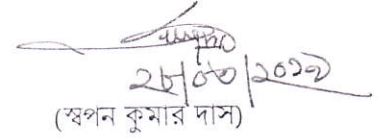 ২৮/০৩/২০১৭
(স্বপন কুমার দাস)